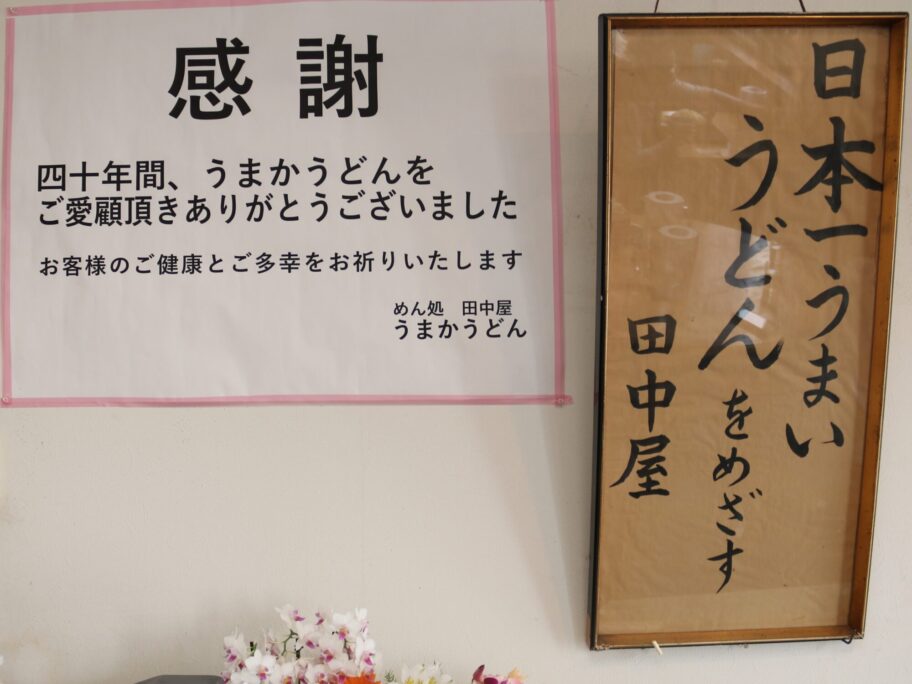 感謝
四十年間、うまかうどんを
ご愛顧頂きありがとうございました
お客様のご健康とご多幸をお祈りいたします
めん処 田中屋
うまかうどん
日本一うまい
うどんをめざす
田中屋